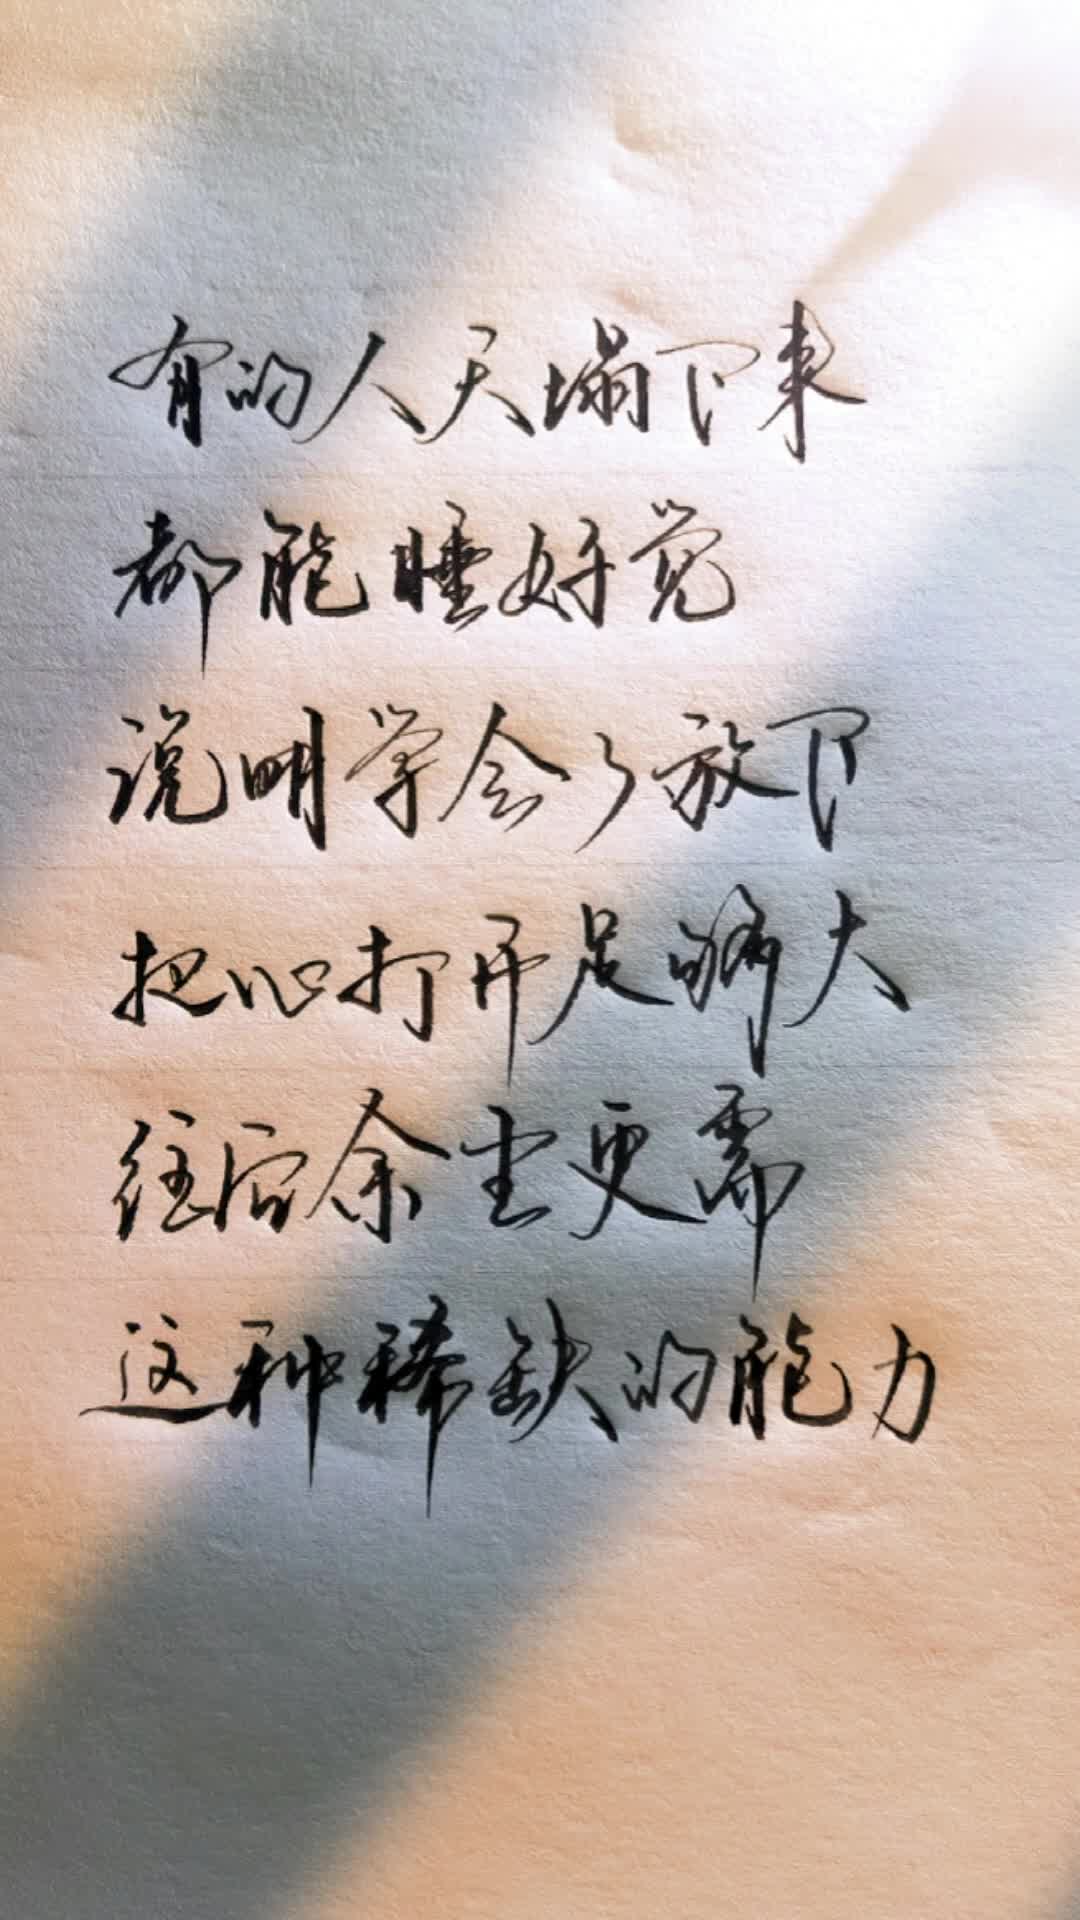 有的人天塌下来
都能睡好觉
说明学会了放下
把心打开足够大
往后余生更需
这种稀缺的能力